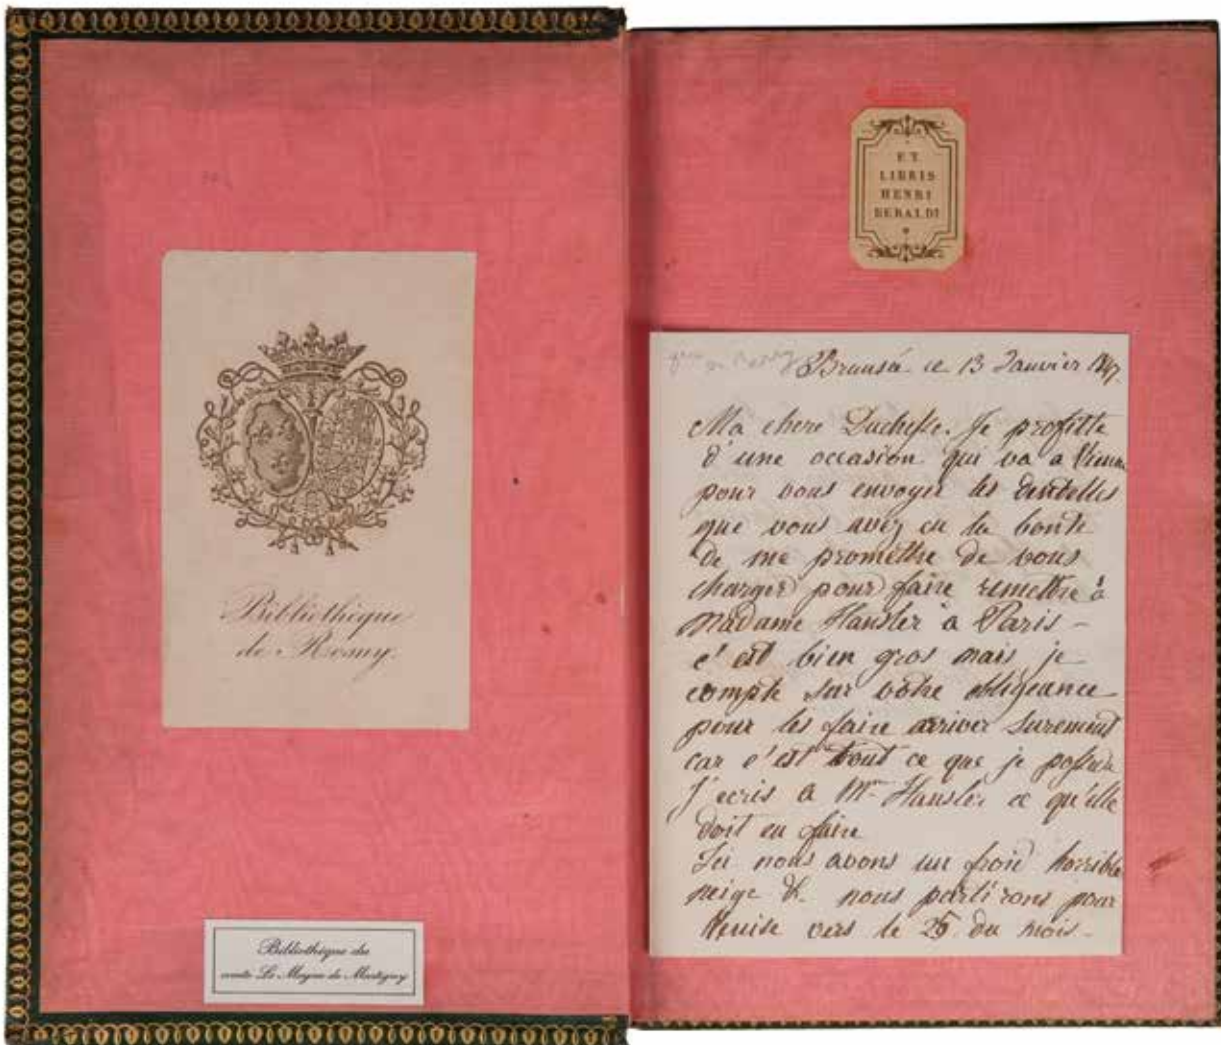 Bibliothèque
de Rosny.
Bibliothèque du
comte Le Moyne de Martigny
EX
LIBRIS
HENRI
BERALDI
Brunsée ce 13 Janvier 1847.
Ma chere Duchesse. Je profitte
d'une occasion qui va a Vienne
pour vous envoyer les dentelles
que vous avez eu la bonté
de me promettre de vous
charger pour faire remettre à
Madame Hausler à Paris –
c'est bien gros mais je
compte sur votre obligeance
pour les faire arriver surement
car c'est tout ce que je possede
J'ecris a Mme Hausler ce qu'elle
doit en faire
Ici nous avons un froid horrible
neige &. nous partirons pour
Venise vers le 25 du mois –